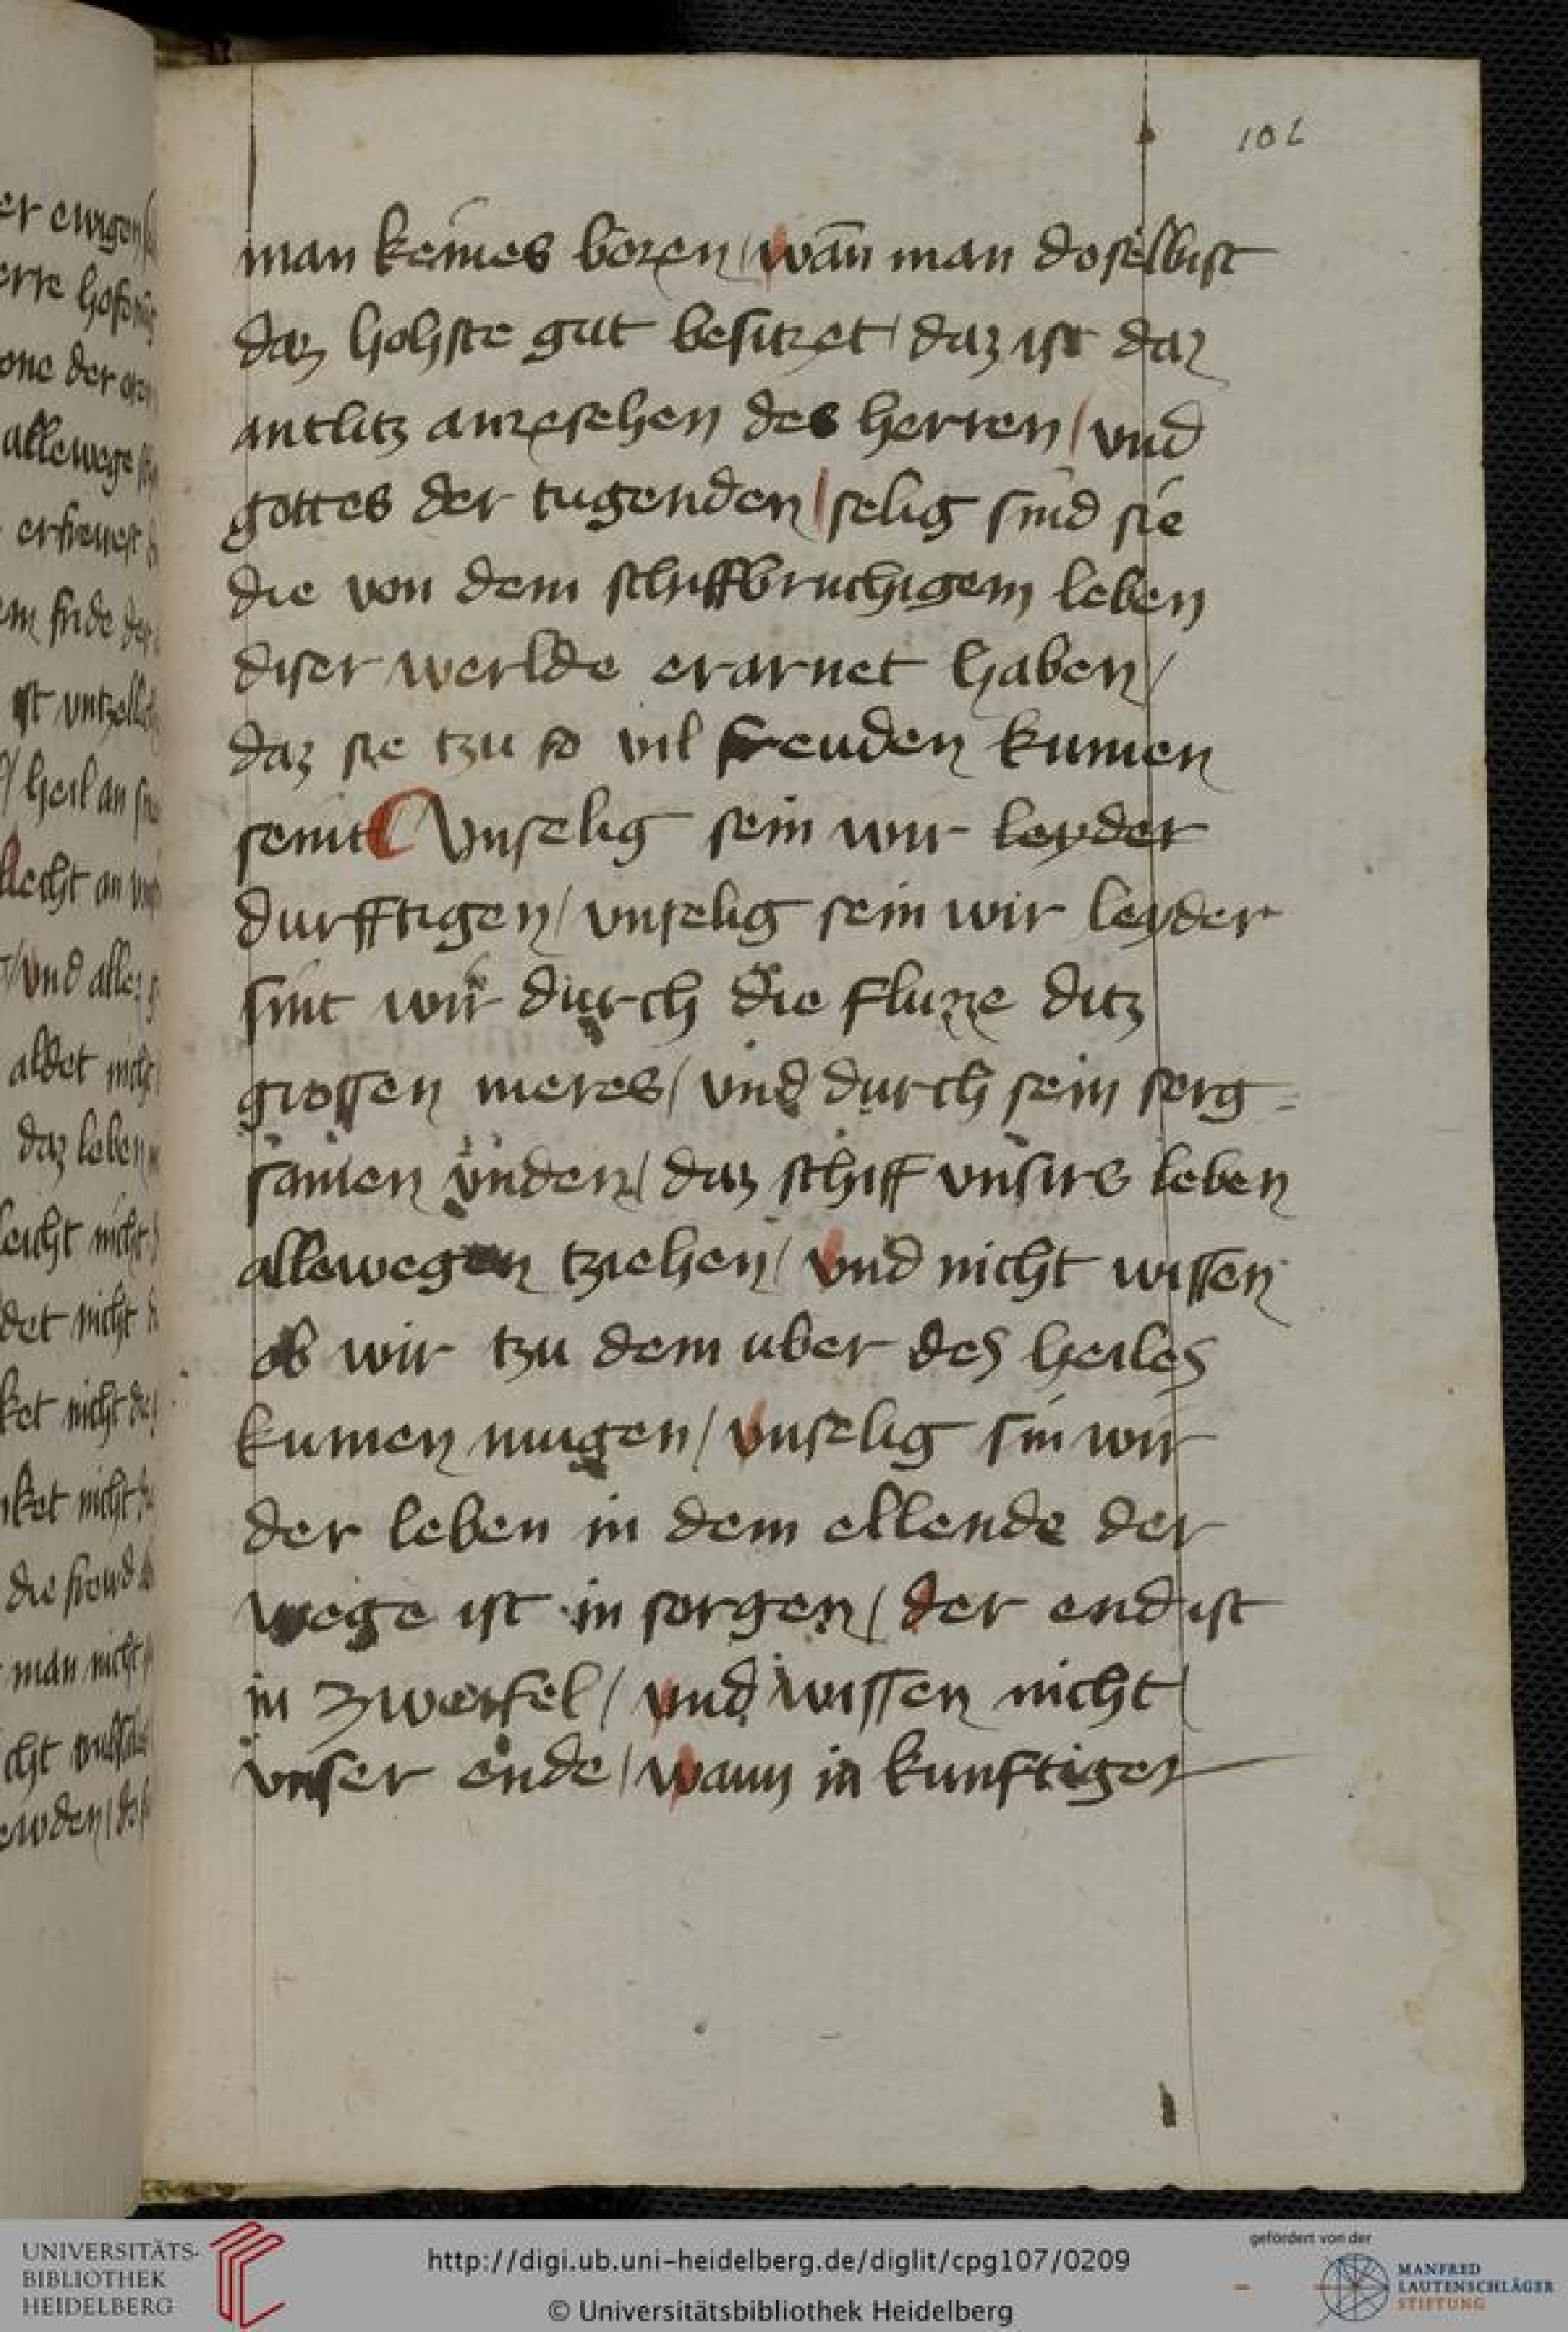 102
man keines bozen / wan̄ man doselbist
daz hohste gut besitzet / daz ist daz
antlitz anzesehen des herren / vnd
gottes der tugenden / selig sind sie
die von dem schiffbruchigem leben
diser werlde erarnet haben /
daz sie tzu so vil freuden kumen
seint Vnselig sein wir leyder
durfftigen / vnselig sein wir leyder
sint wir durch die fluze ditz
grossen meres / vnd durch sein sorg-
samen vnden / daz schiff vnsirs leben
allewegen tziehen / vnd nicht wissen
ob wir tzu dem vber des heiles
kumen mugen / vnselig sin wir
der leben in dem ellende der
wege ist in sorgen / der end ist
in zweifel / vnd wissen nicht
vnser ende / wann in kunftiger
UNIVERSITÄTS-
BIBLIOTHEK
HEIDELBERG
http://digi.ub.uni-heidelberg.de/diglit/cpg107/0209
© Universitätsbibliothek Heidelberg
gefördert von der
MANFRED
LAUTENSCHLÄGER
STIFTUNG